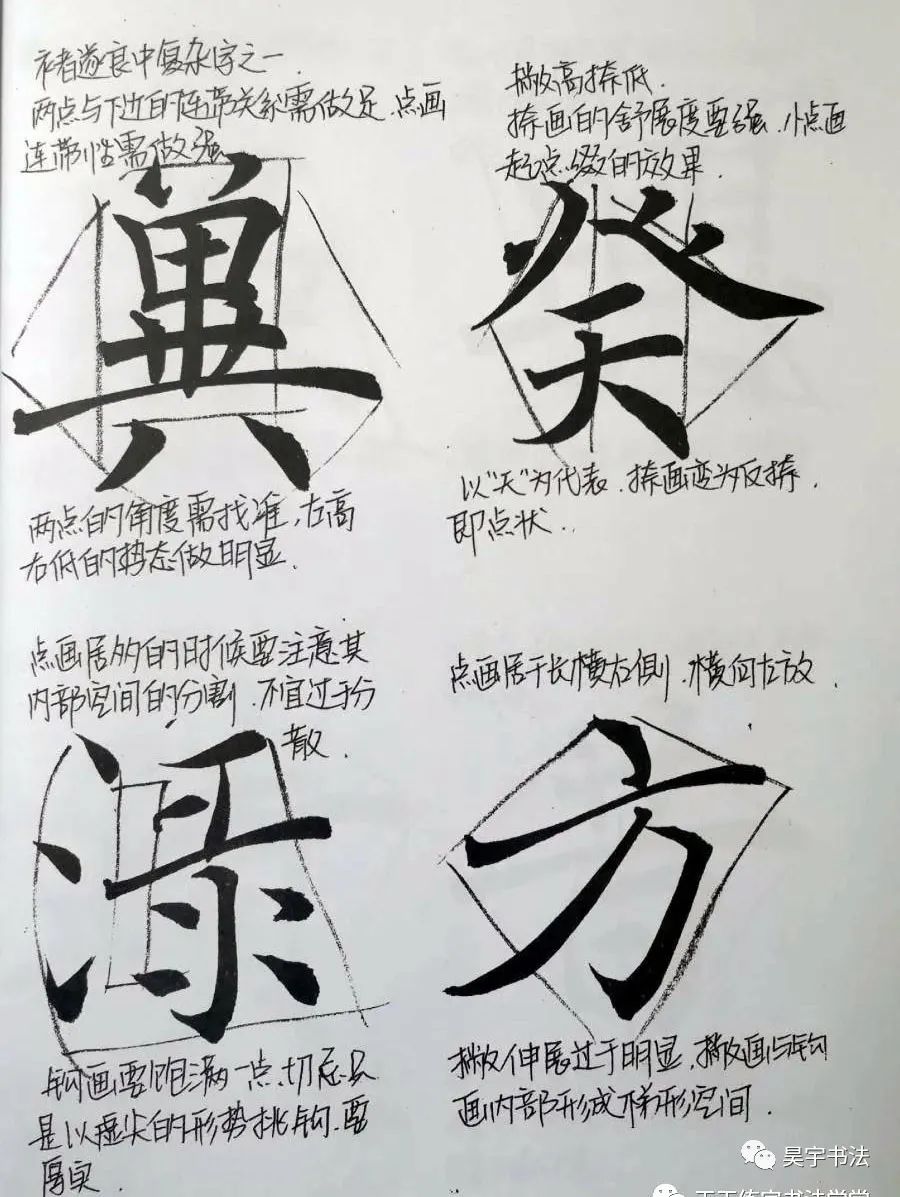 褚遂良中复杂字之一.
两点与下边的连带关系需做足.点画
连带性需做强
冀
两点的角度需找准,左高
右低的势态做明显.
撇高捺低.
捺画的舒展度要强.小点画
起点缀的效果.
癸
以"天"为代表.捺画变为反捺,
即点状..
点画居多的时候要注意其
内部空间的分割.不宜过于分
散.
钩画要饱满一点.切忌只
是以虚尖的形势挑钩.要
厚实.
点画居于长横右侧.横向左放.
方
撇伸展过于明显.撇画与钩
画内部形成梯形空间.
昊宇书法